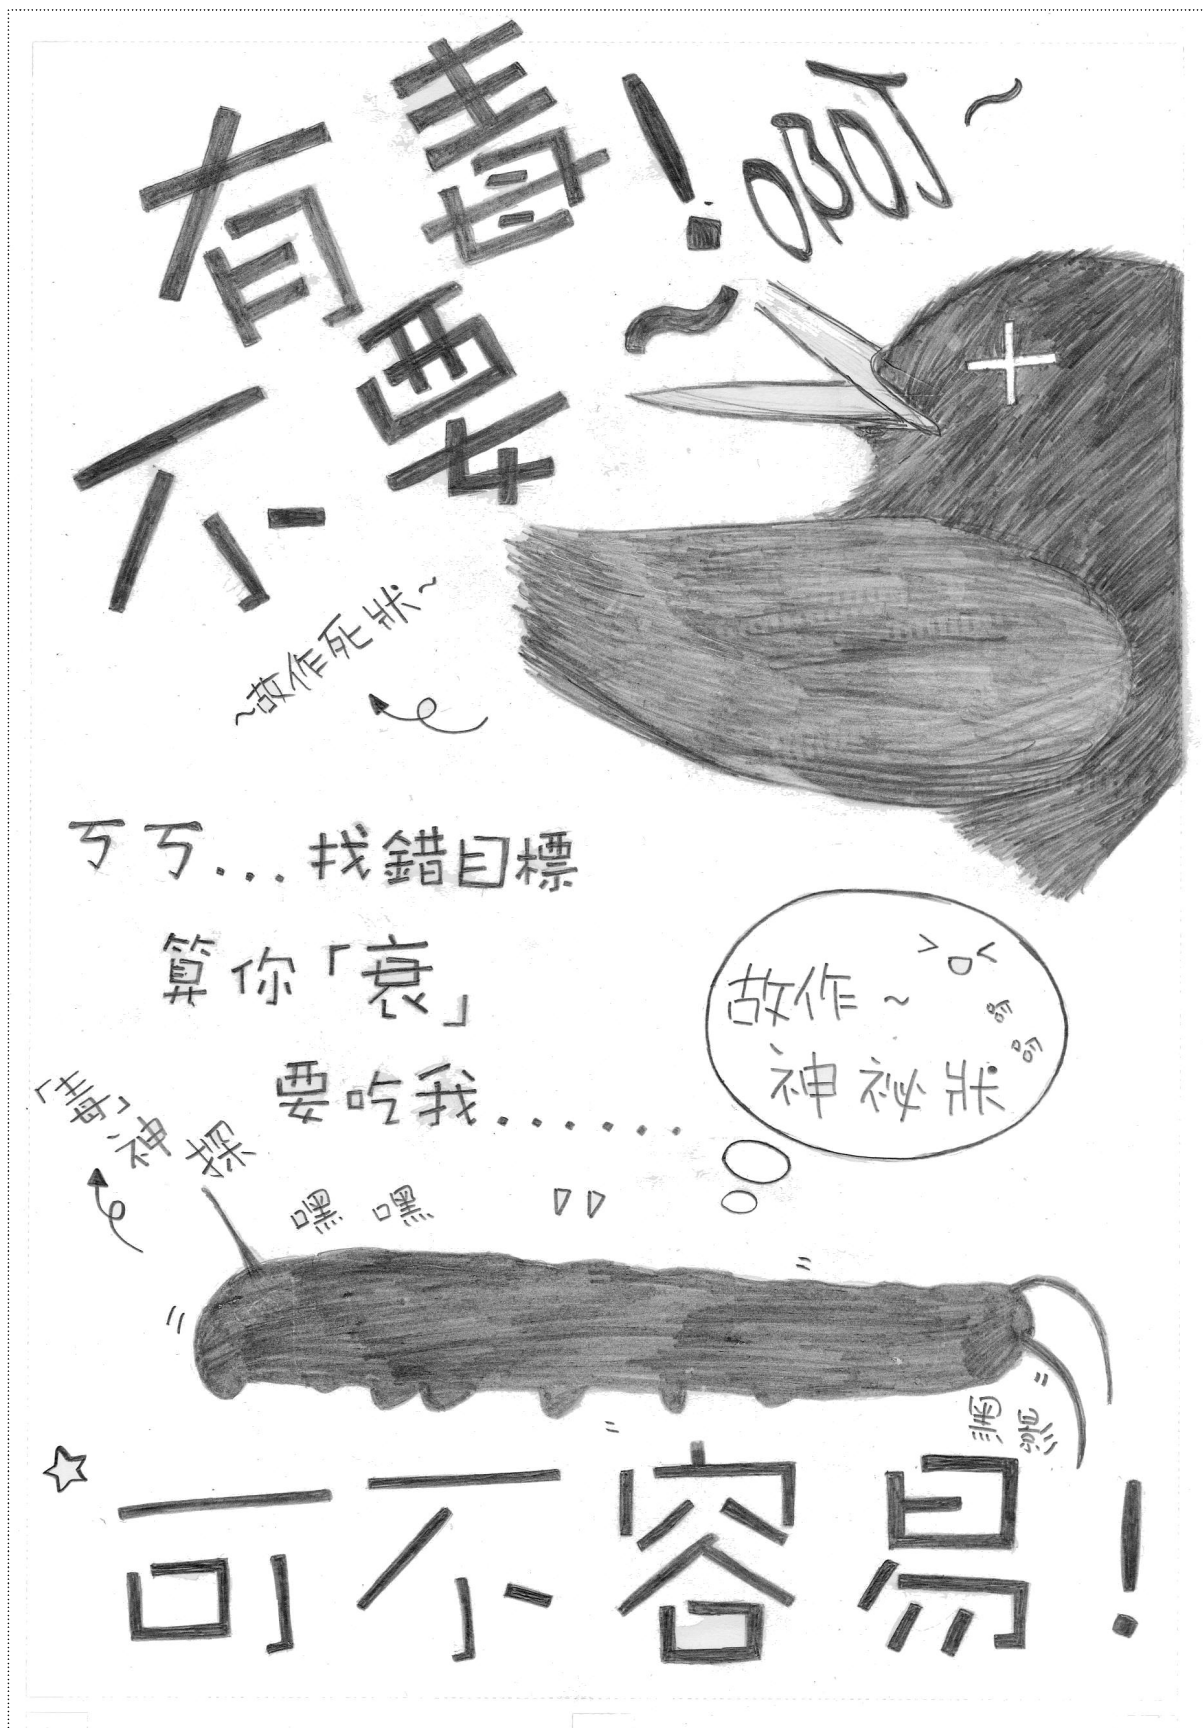 有毒!
啊~
不要~
~故作死狀~
ㄎㄎ...找錯目標
算你「衰」
要吃我......
故作~
神祕狀
「毒」神探
嘿嘿
可不容易!